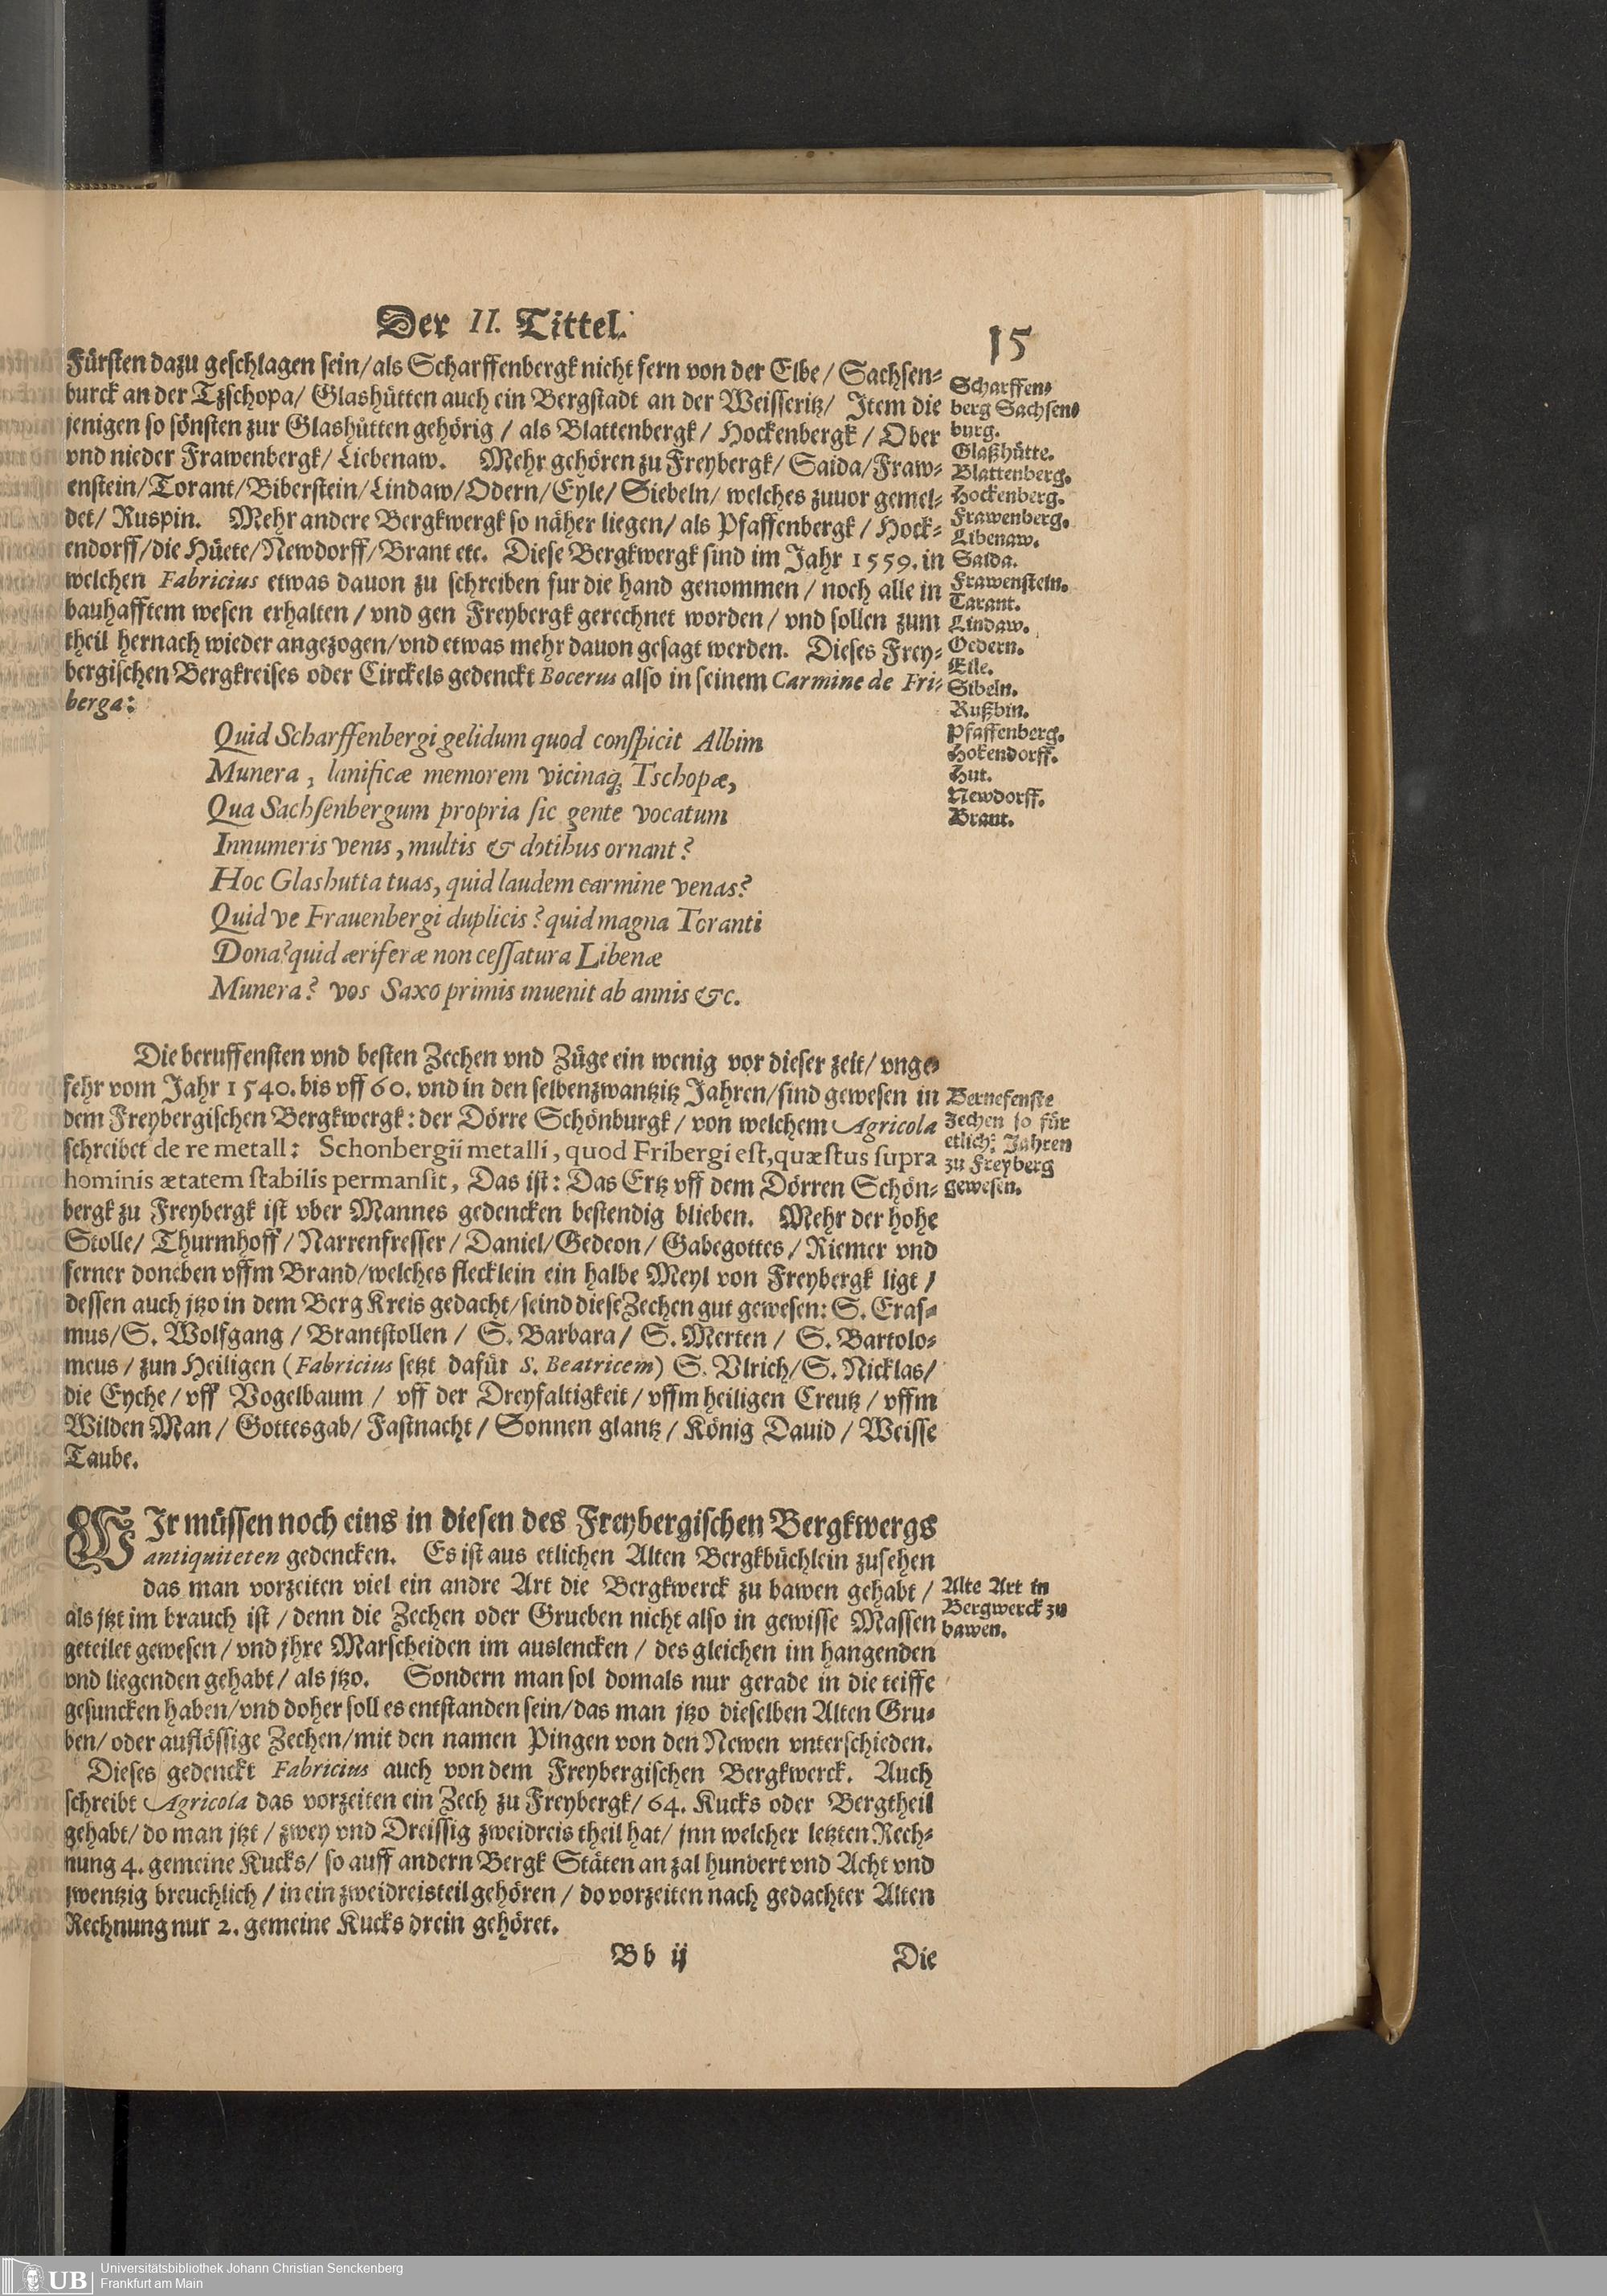 Der II. Tittel.
15
Fürsten dazu geschlagen sein/als Scharffenbergk nicht fern von der Elbe/ Sachsen-
burck an der Tzschopa/ Glashütten auch ein Bergstadt an der Weisseritz/ Item die
jenigen so sönsten zur Glashütten gehörig / als Blattenbergk/ Hockenbergk/ Ober
vnd nieder Frawenbergk/ Liebenaw. Mehr gehören zu Freybergk/ Saida/Fraw-
enstein/Torant/Biberstein/Lindaw/Odern/Eyle/ Siebeln/ welches zuuor gemel-
det/ Ruspin. Mehr andere Bergkwergk so näher liegen/ als Pfaffenbergk/ Hock-
endorff/die Hüete/Newdorff/Brant etc. Diese Bergkwergk sind im Jahr 1559. in
welchen Fabricius etwas dauon zu schreiben fur die hand genommen / noch alle in
bauhafftem wesen erhalten / vnd gen Freybergk gerechnet worden / vnd sollen zum
theil hernach wieder angezogen/vnd etwas mehr dauon gesagt werden. Dieses Frey-
bergischen Bergkreises oder Circkels gedenckt Bocerus also in seinem Carmine de Fri-
berga:
Scharffen-
berg Sachsen-
burg.
Glaßhütte.
Blattenberg.
Hockenberg.
Frawenberg.
Libenaw.
Saida.
Frawenstein.
Tarant.
Lindaw.
Oedern.
Eile.
Sibeln.
Rußbin.
Pfaffenberg.
Hokendorff.
Hut.
Newdorff.
Brant.
Quid Scharffenbergi gelidum quod conspicit Albim
Munera, lanificæ memorem vicinaq; Tschopæ,
Qua Sachsenbergum propria sic gente vocatum
Innumeris venis, multis & dotibus ornant?
Hoc Glashutta tuas, quid laudem carmine venas?
Quid ve Frauenbergi duplicis? quid magna Toranti
Dona? quid æriferæ non cessatura Libenæ
Munera? vos Saxo primis inuenit ab annis &c.
Die beruffensten vnd besten Zechen vnd Züge ein wenig vor dieser zeit/ vnge-
fehr vom Jahr 1540. bis vff 60. vnd in den selben zwantzitz Jahren/sind gewesen in
dem Freybergischen Bergkwergk: der Dörre Schönburgk / von welchem Agricola
schreibet de re metall: Schonbergii metalli, quod Fribergi est, quæstus supra
hominis ætatem stabilis permansit, Das ist: Das Ertz vff dem Dörren Schön-
bergk zu Freybergk ist vber Mannes gedencken bestendig blieben. Mehr der hohe
Stolle/ Thurmhoff/ Narrenfresser/ Daniel/Gedeon/ Gabegottes/ Riemer vnd
ferner doneben vffm Brand/welches flecklein ein halbe Meyl von Freybergk ligt /
dessen auch jtzo in dem Berg Kreis gedacht/seind diese Zechen gut gewesen: S. Eras-
mus/S. Wolfgang / Brantstollen / S. Barbara/ S. Merten / S. Bartolo-
meus / zun Heiligen (Fabricius setzt dafür S. Beatricem) S. Vlrich/S. Nicklas/
die Eyche/ vff Vogelbaum / vff der Dreyfaltigkeit/ vffm heiligen Creutz / vffm
Wilden Man/ Gottesgab/ Fastnacht / Sonnen glantz / König Dauid / Weisse
Taube.
Bernefenste
Zechen so für
etlich: Jahren
zu Freyberg
gewesen.
WIr müssen noch eins in diesen des Freybergischen Bergkwergs
antiquiteten gedencken. Es ist aus etlichen Alten Bergkbüchlein zusehen
das man vorzeiten viel ein andre Art die Bergkwerck zu bawen gehabt /
als jtzt im brauch ist / denn die Zechen oder Grueben nicht also in gewisse Massen
geteilet gewesen / vnd jhre Marscheiden im auslencken / des gleichen im hangenden
vnd liegenden gehabt / als jtzo. Sondern man sol domals nur gerade in die teiffe
gesuncken haben/vnd doher soll es entstanden sein/das man jtzo dieselben Alten Gru-
ben/ oder auflössige Zechen/mit den namen Pingen von den Newen vnterschieden.
Dieses gedenckt Fabricius auch von dem Freybergischen Bergkwerck. Auch
schreibt Agricola das vorzeiten ein Zech zu Freybergk/ 64. Kucks oder Bergtheil
gehabt/ do man jtzt / zwey vnd Dreissig zweidreis theil hat/ jnn welcher letzten Rech-
nung 4. gemeine Kucks/ so auff andern Bergk Stäten an zal hundert vnd Acht vnd
zwentzig breuchlich / in ein zweidreisteil gehören / do vorzeiten nach gedachter Alten
Rechnung nur 2. gemeine Kucks drein gehöret.
Alte Art in
Bergwerck zu
bawen.
Bb ij
Die
UB
Universitätsbibliothek Johann Christian Senckenberg
Frankfurt am Main